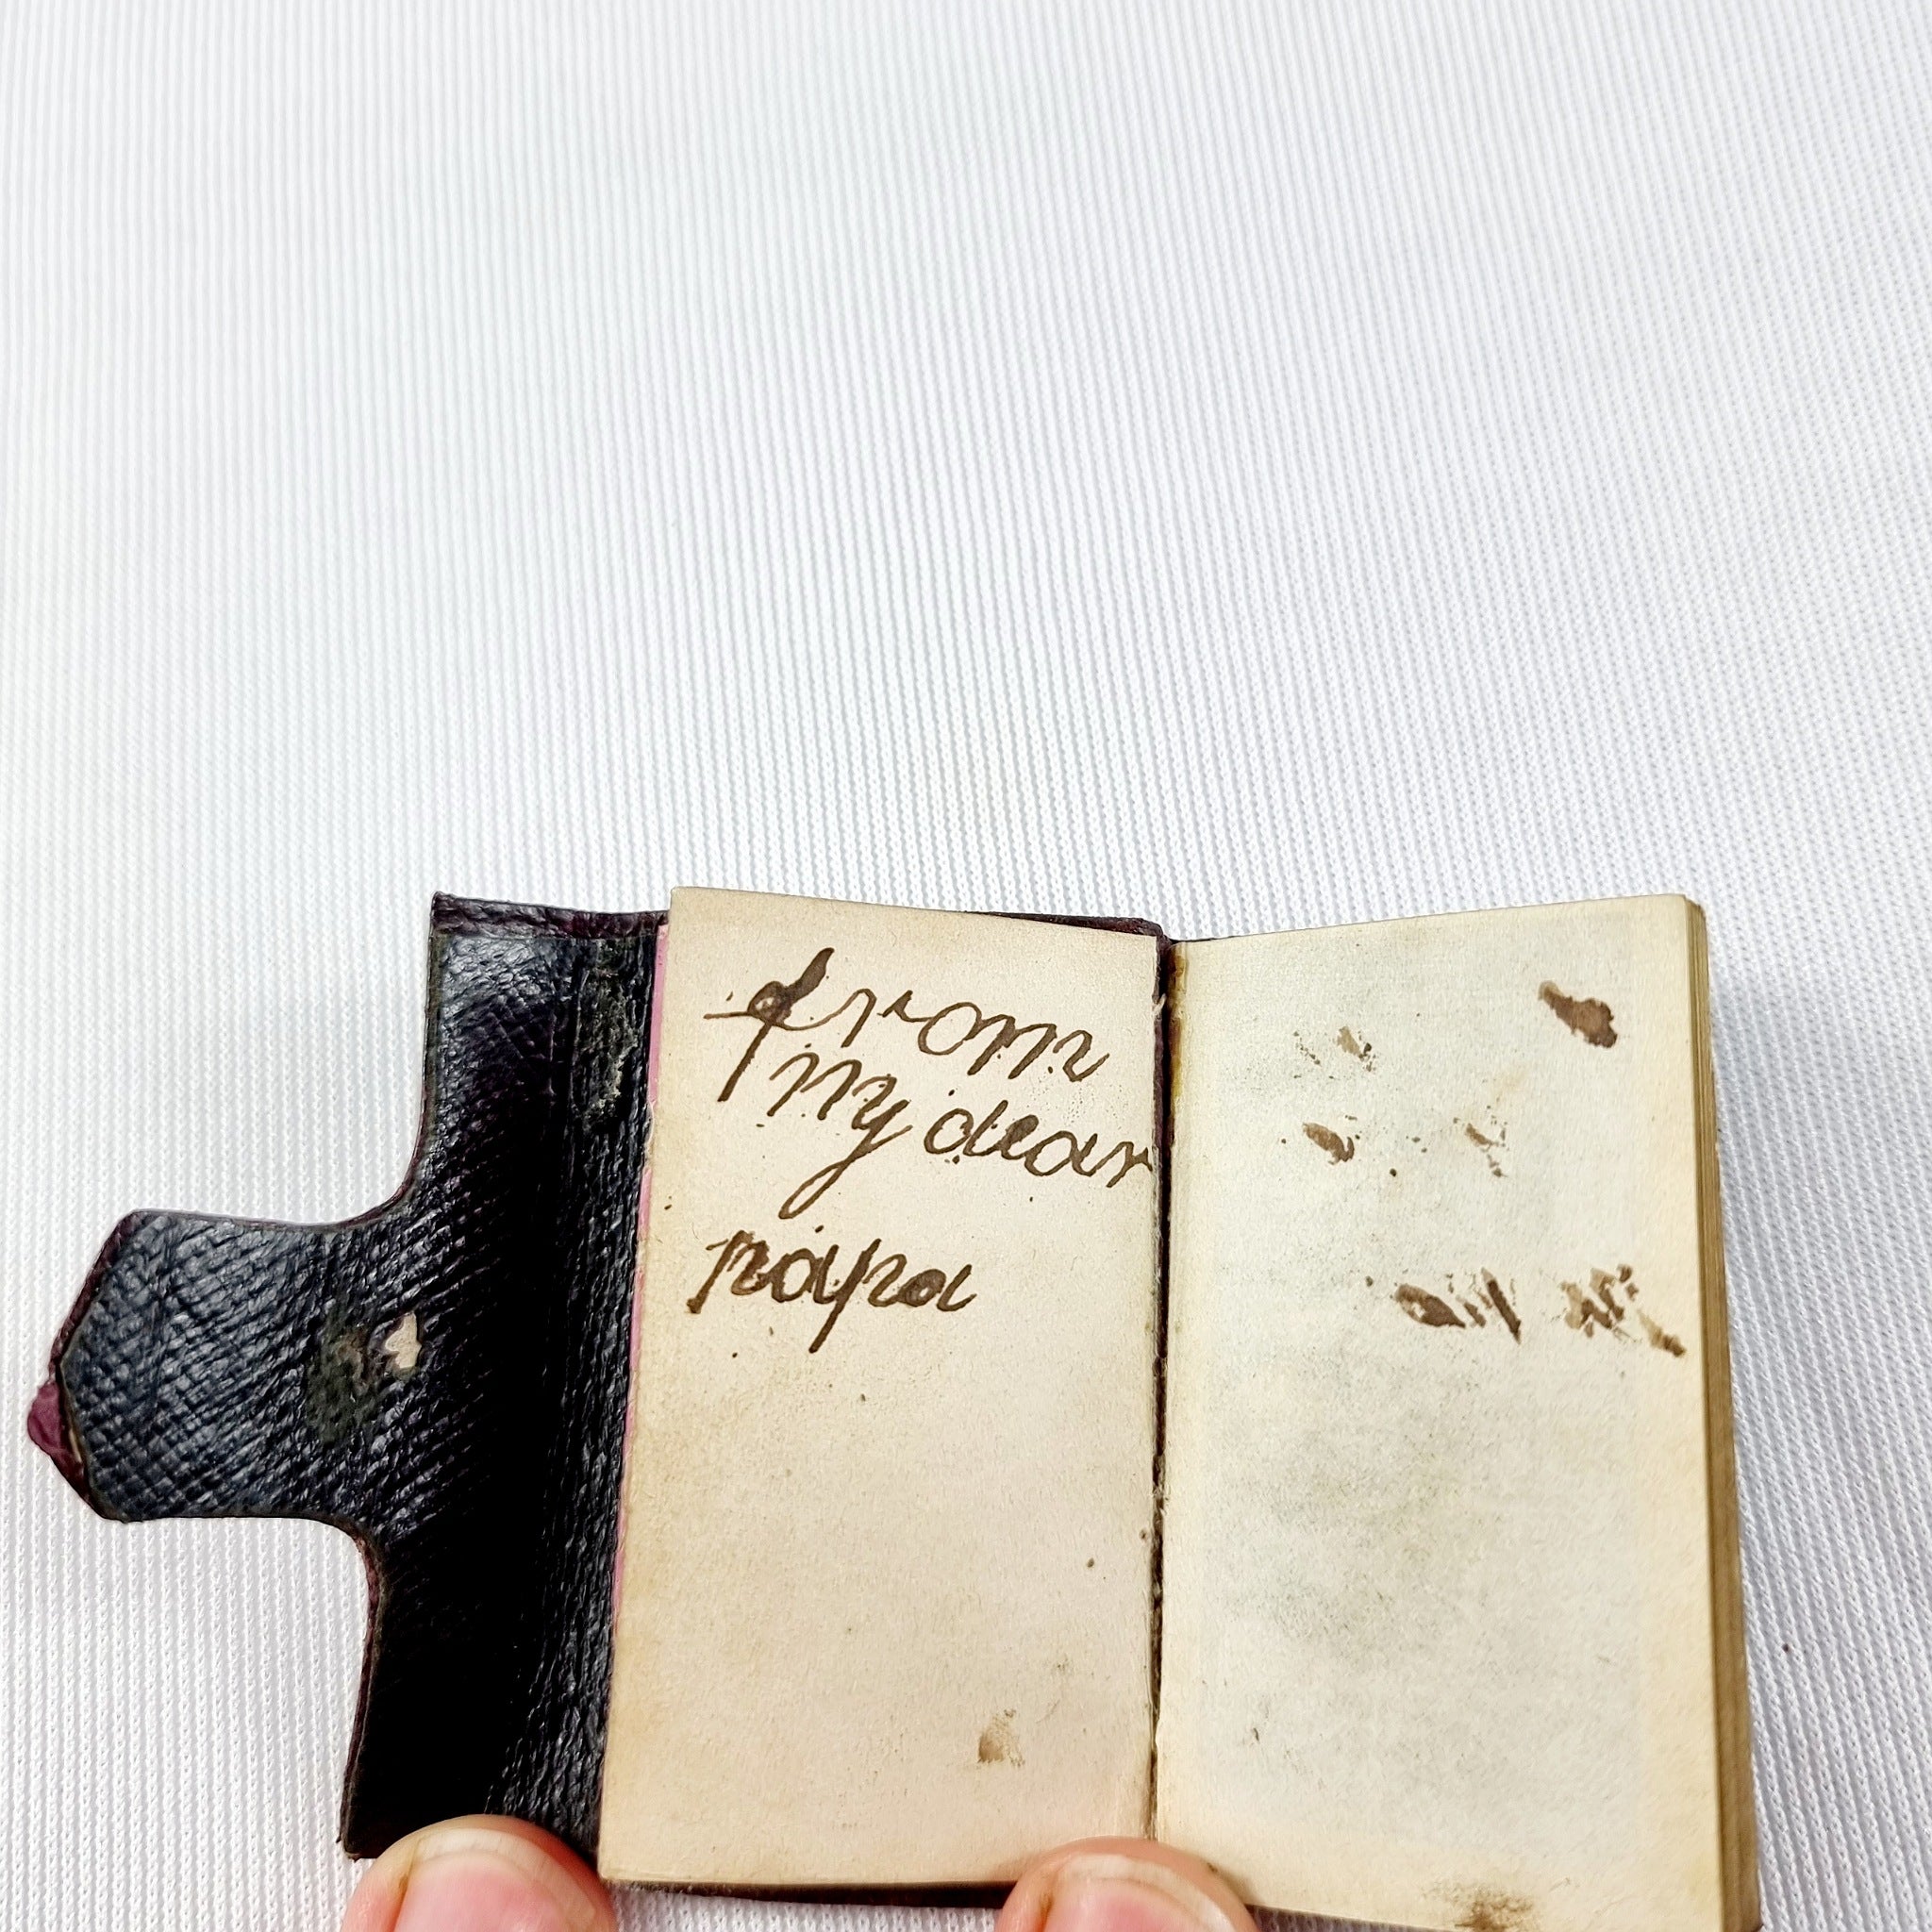 from
my dear
papa